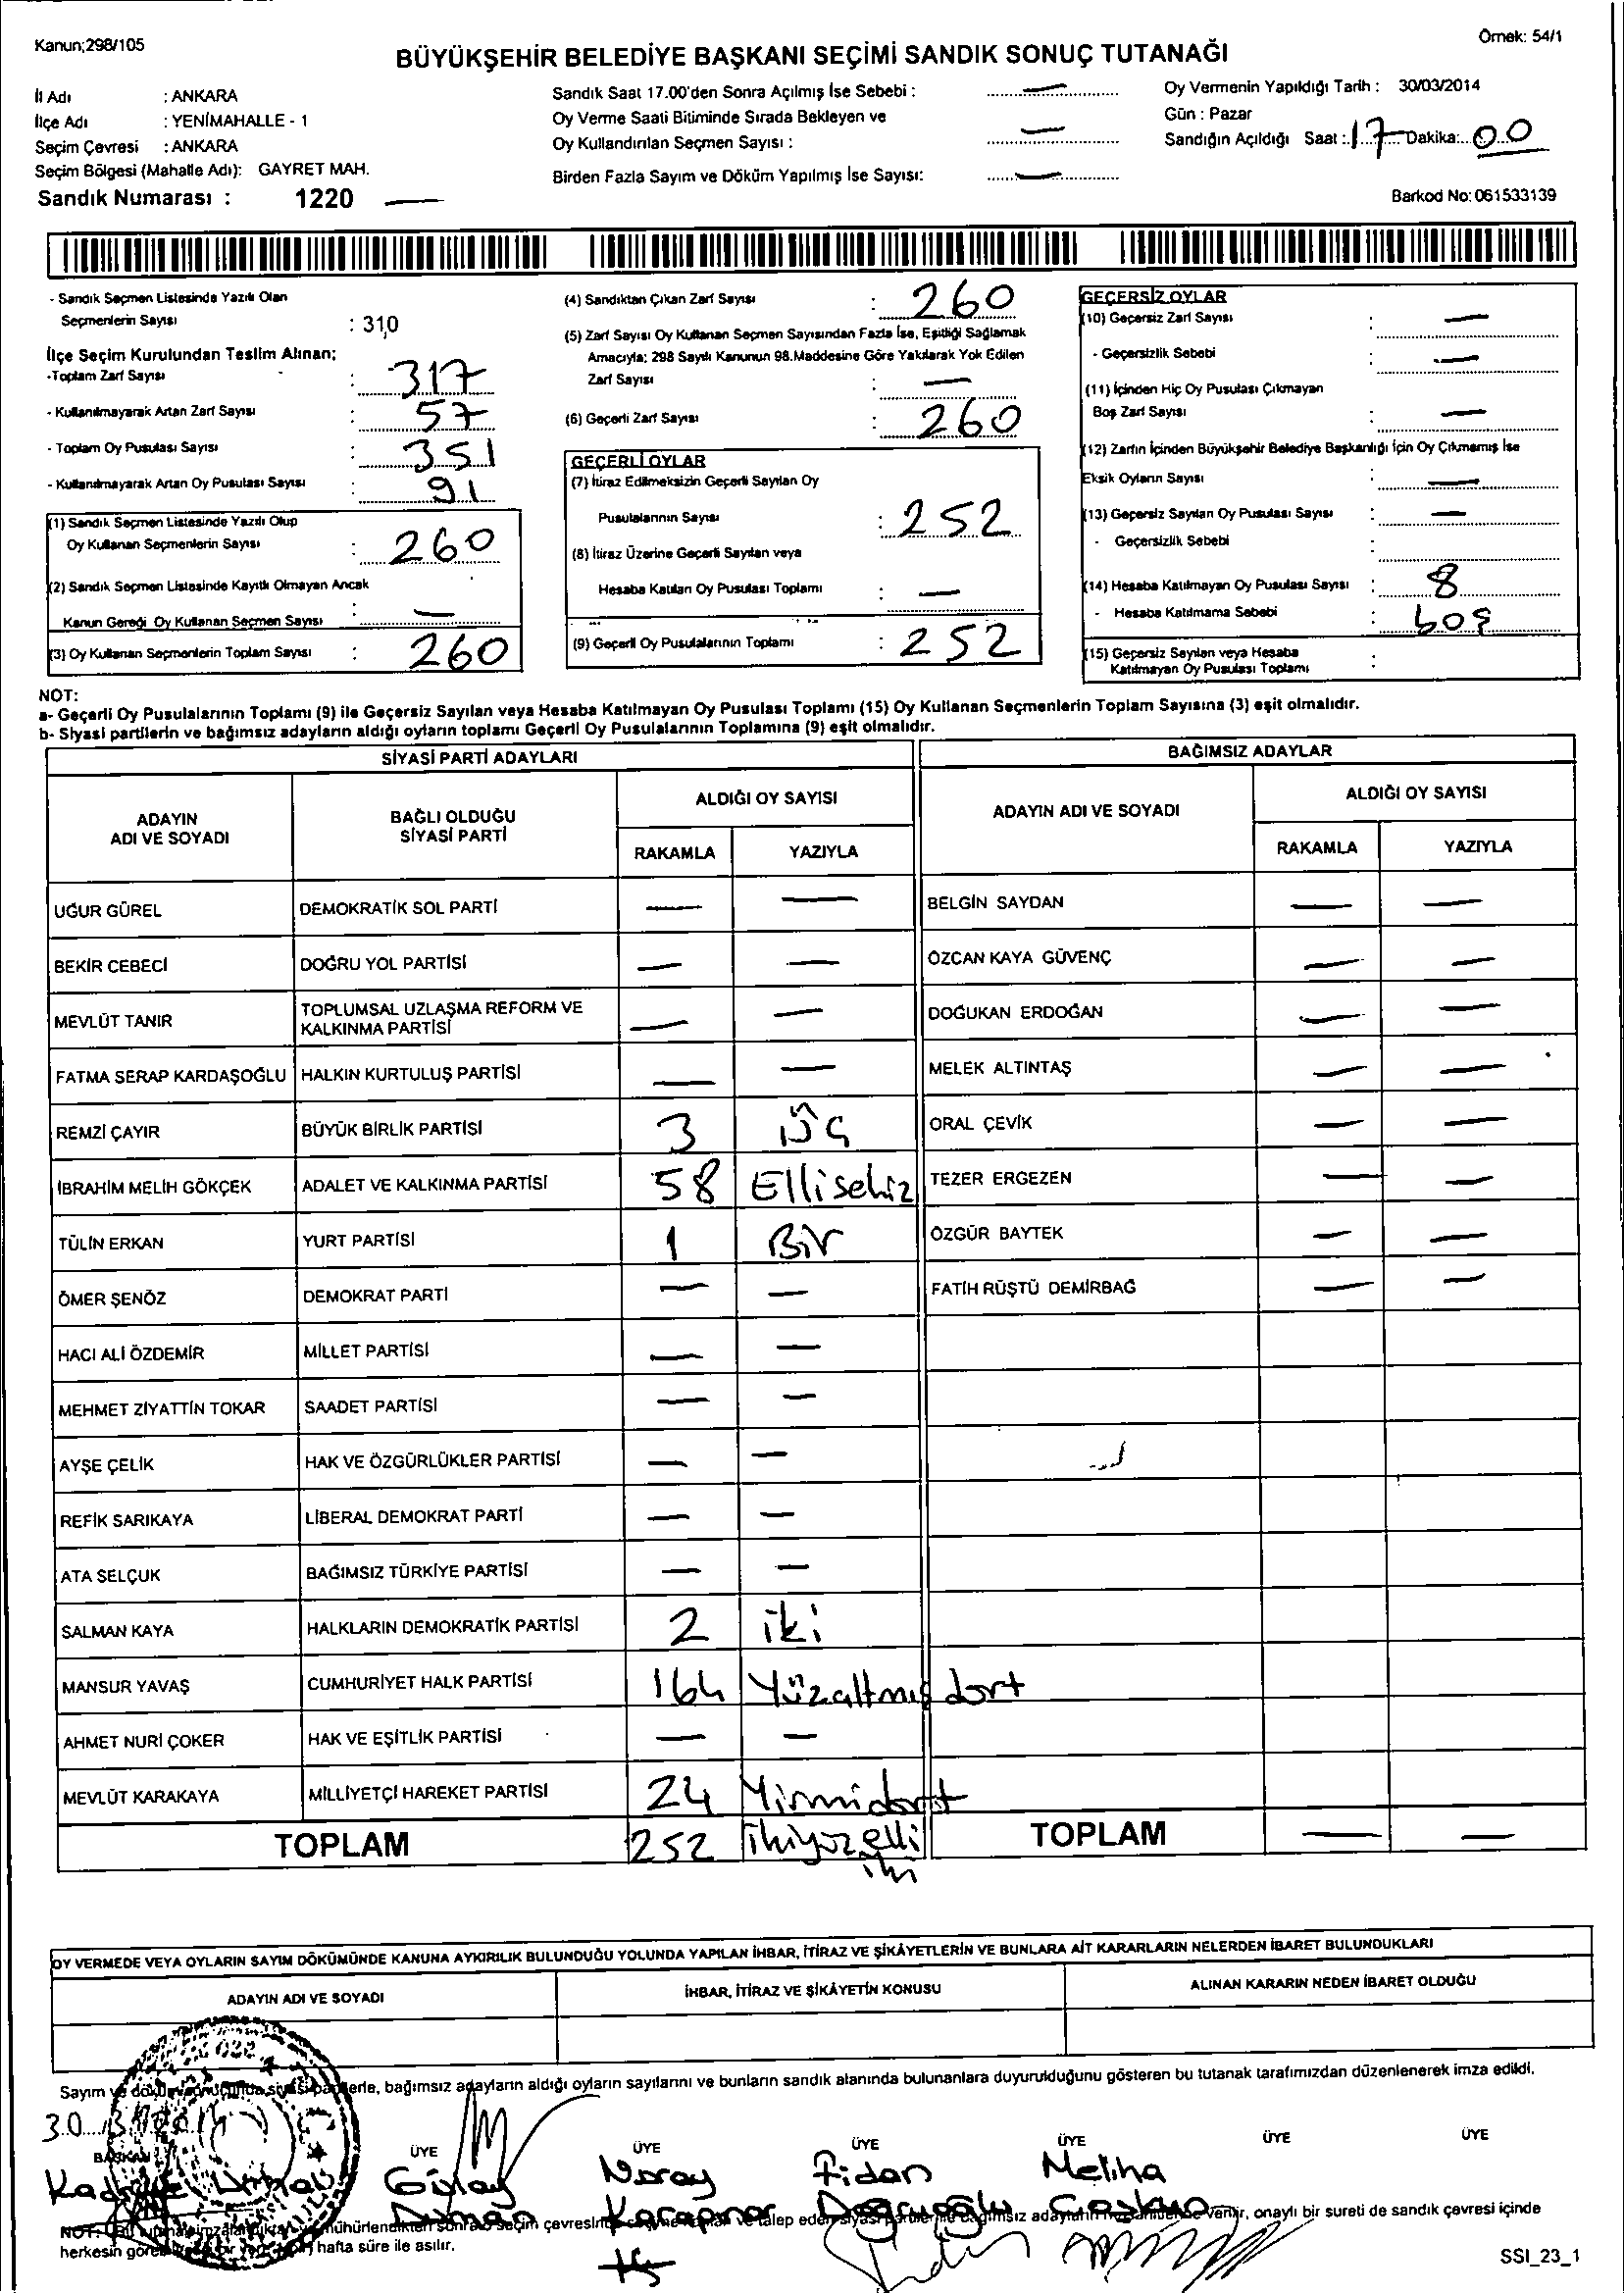 Kanun;298/105
Örnek: 54/1
BÜYÜKŞEHİR BELEDİYE BAŞKANI SEÇİMİ SANDIK SONUÇ TUTANAĞI
İl Adı : ANKARA
İlçe Adı : YENİMAHALLE - 1
Seçim Çevresi : ANKARA
Seçim Bölgesi (Mahalle Adı): GAYRET MAH.
Sandık Numarası : 1220 —
Sandık Saat 17.00'den Sonra Açılmış İse Sebebi : —
Oy Verme Saati Bitiminde Sırada Bekleyen ve
Oy Kullandırılan Seçmen Sayısı : —
Birden Fazla Sayım ve Döküm Yapılmış İse Sayısı: —
Oy Vermenin Yapıldığı Tarih : 30/03/2014
Gün : Pazar
Sandığın Açıldığı Saat : 17 Dakika: 00
Barkod No: 061533139
- Sandık Seçmen Listesinde Yazılı Olan
Seçmenlerin Sayısı : 310
İlçe Seçim Kurulundan Teslim Alınan;
-Toplam Zarf Sayısı : 317
- Kullanılmayarak Artan Zarf Sayısı : 57
- Toplam Oy Pusulası Sayısı : 351
- Kullanılmayarak Artan Oy Pusulası Sayısı : 91
(1) Sandık Seçmen Listesinde Yazılı Olup
Oy Kullanan Seçmenlerin Sayısı : 260
(2) Sandık Seçmen Listesinde Kayıtlı Olmayan Ancak
Kanun Gereği Oy Kullanan Seçmen Sayısı : —
(3) Oy Kullanan Seçmenlerin Toplam Sayısı : 260
(4) Sandıktan Çıkan Zarf Sayısı : 260
(5) Zarf Sayısı Oy Kullanan Seçmen Sayısından Fazla İse, Eşitliği Sağlamak
Amacıyla; 298 Sayılı Kanunun 98.Maddesine Göre Yakılarak Yok Edilen
Zarf Sayısı : —
(6) Geçerli Zarf Sayısı : 260
GEÇERLİ OYLAR
(7) İtiraz Edilmeksizin Geçerli Sayılan Oy
Pusulalarının Sayısı : 252
(8) İtiraz Üzerine Geçerli Sayılan veya
Hesaba Katılan Oy Pusulası Toplamı : —
(9) Geçerli Oy Pusulalarının Toplamı : 252
GEÇERSİZ OYLAR
(10) Geçersiz Zarf Sayısı : —
- Geçersizlik Sebebi : —
(11) İçinden Hiç Oy Pusulası Çıkmayan
Boş Zarf Sayısı : —
(12) Zarfın İçinden Büyükşehir Belediye Başkanlığı İçin Oy Çıkmamış İse
Eksik Oyların Sayısı : —
(13) Geçersiz Sayılan Oy Pusulası Sayısı : —
- Geçersizlik Sebebi :
(14) Hesaba Katılmayan Oy Pusulası Sayısı : 8
- Hesaba Katılmama Sebebi : boş
(15) Geçersiz Sayılan veya Hesaba
Katılmayan Oy Pusulası Toplamı :
NOT:
a- Geçerli Oy Pusulalarının Toplamı (9) ile Geçersiz Sayılan veya Hesaba Katılmayan Oy Pusulası Toplamı (15) Oy Kullanan Seçmenlerin Toplam Sayısına (3) eşit olmalıdır.
b- Siyasi partilerin ve bağımsız adayların aldığı oyların toplamı Geçerli Oy Pusulalarının Toplamına (9) eşit olmalıdır.
SİYASİ PARTİ ADAYLARI
ADAYIN ADI VE SOYADI
BAĞLI OLDUĞU SİYASİ PARTİ
ALDIĞI OY SAYISI
RAKAMLA YAZIYLA
UĞUR GÜREL DEMOKRATİK SOL PARTİ — —
BEKİR CEBECİ DOĞRU YOL PARTİSİ — —
MEVLÜT TANIR TOPLUMSAL UZLAŞMA REFORM VE KALKINMA PARTİSİ — —
FATMA SERAP KARDAŞOĞLU HALKIN KURTULUŞ PARTİSİ — —
REMZİ ÇAYIR BÜYÜK BİRLİK PARTİSİ 3 Üç
İBRAHİM MELİH GÖKÇEK ADALET VE KALKINMA PARTİSİ 58 Ellisekiz
TÜLİN ERKAN YURT PARTİSİ 1 Bir
ÖMER ŞENÖZ DEMOKRAT PARTİ — —
HACI ALİ ÖZDEMİR MİLLET PARTİSİ — —
MEHMET ZİYATTİN TOKAR SAADET PARTİSİ — —
AYŞE ÇELİK HAK VE ÖZGÜRLÜKLER PARTİSİ — —
REFİK SARIKAYA LİBERAL DEMOKRAT PARTİ — —
ATA SELÇUK BAĞIMSIZ TÜRKİYE PARTİSİ — —
SALMAN KAYA HALKLARIN DEMOKRATİK PARTİSİ 2 iki
MANSUR YAVAŞ CUMHURİYET HALK PARTİSİ 164 Yüzaltmış dört
AHMET NURİ ÇOKER HAK VE EŞİTLİK PARTİSİ — —
MEVLÜT KARAKAYA MİLLİYETÇİ HAREKET PARTİSİ 24 Yirmidört
TOPLAM 252 İkiyüzelli iki
BAĞIMSIZ ADAYLAR
ADAYIN ADI VE SOYADI
ALDIĞI OY SAYISI
RAKAMLA YAZIYLA
BELGİN SAYDAN — —
ÖZCAN KAYA GÜVENÇ — —
DOĞUKAN ERDOĞAN — —
MELEK ALTINTAŞ — —
ORAL ÇEVİK — —
TEZER ERGEZEN — —
ÖZGÜR BAYTEK — —
FATİH RÜŞTÜ DEMİRBAĞ — —
TOPLAM — —
OY VERMEDE VEYA OYLARIN SAYIM DÖKÜMÜNDE KANUNA AYKIRILIK BULUNDUĞU YOLUNDA YAPILAN İHBAR, İTİRAZ VE ŞİKÂYETLERİN VE BUNLARA AİT KARARLARIN NELERDEN İBARET BULUNDUKLARI
ADAYIN ADI VE SOYADI
İHBAR, İTİRAZ VE ŞİKÂYETİN KONUSU
ALINAN KARARIN NEDEN İBARET OLDUĞU
Sayım ve döküm sonucunda siyasi partilerle, bağımsız adayların aldığı oyların sayılarını ve bunların sandık alanında bulunanlara duyurulduğunu gösteren bu tutanak tarafımızdan düzenlenerek imza edildi.
BAŞKAN ÜYE ÜYE ÜYE ÜYE ÜYE ÜYE
Gülay Nuray Fidan Meliha
Duman Karapınar Doğruoğlu Coşkun
seçim çevresinde onaylı bir sureti de sandık çevresi içinde
hafta süre ile asılır.
SSI_23_1